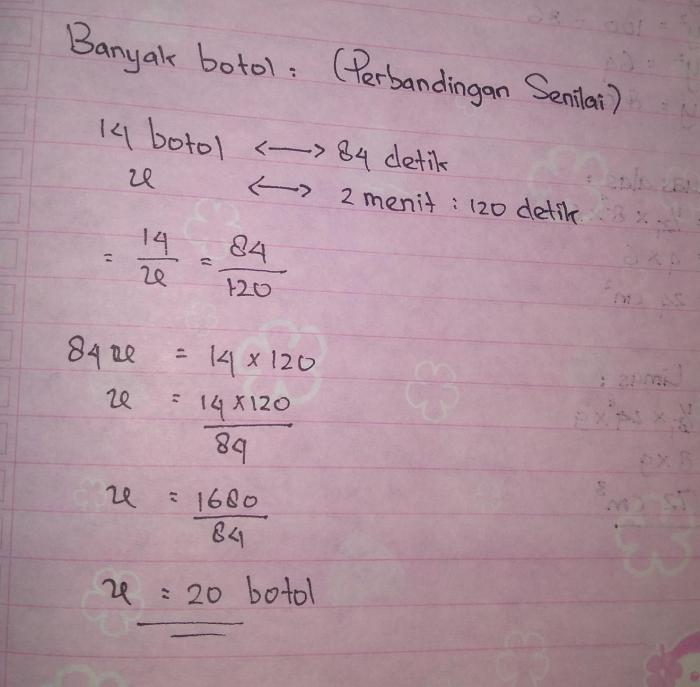 Banyak botol : (Perbandingan Senilai)
14 botol <—> 84 detik
x <—> 2 menit : 120 detik
= 14/x = 84/120
84 x = 14 x 120
x = 14 x 120/84
x = 1680/84
x = 20 botol